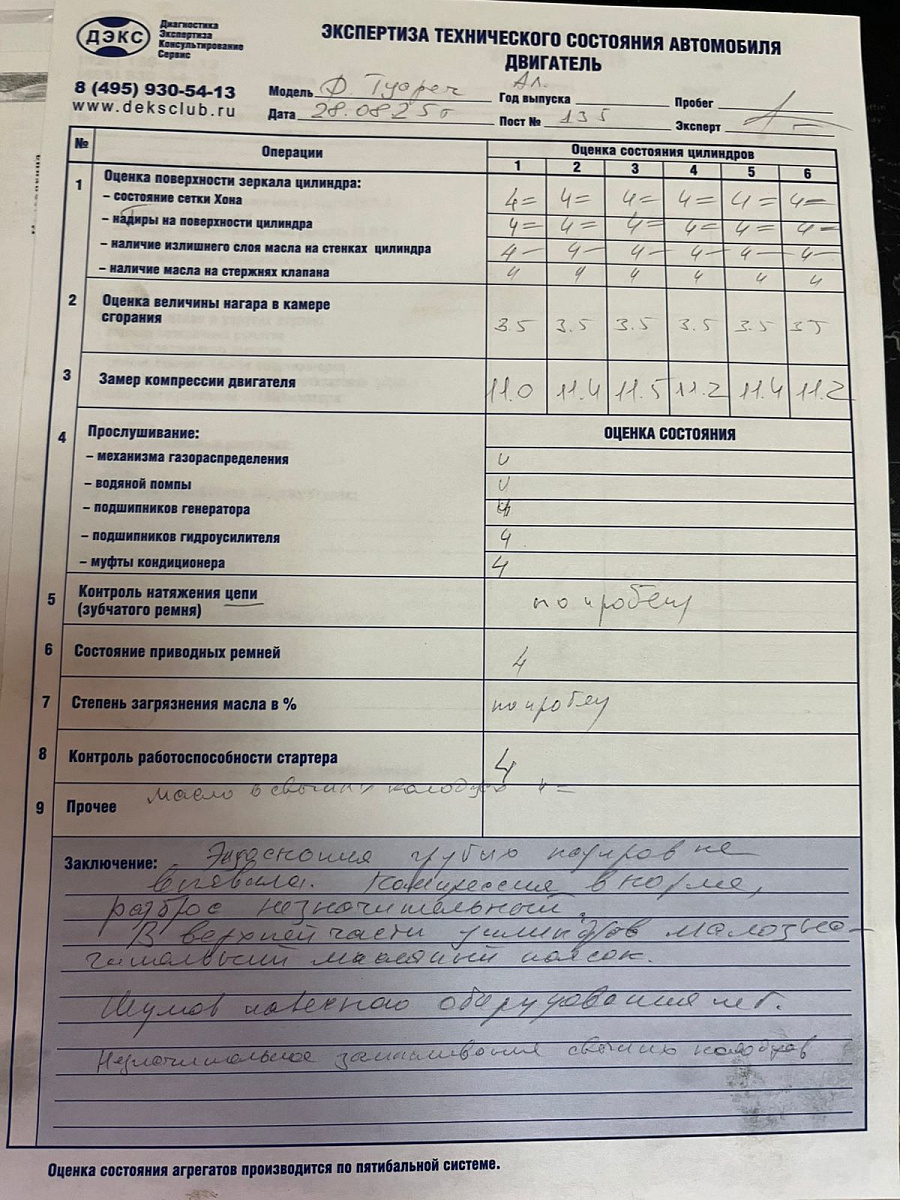 ДЭКС
Диагностика
Экспертиза
Консультирование
Сервис
8 (495) 930-54-13
www.deksclub.ru
ЭКСПЕРТИЗА ТЕХНИЧЕСКОГО СОСТОЯНИЯ АВТОМОБИЛЯ
ДВИГАТЕЛЬ
Модель Ф. Туарег Год выпуска Пробег
Дата 28.08.25г Пост № 135 Эксперт
№ Операции Оценка состояния цилиндров
1 2 3 4 5 6
1 Оценка поверхности зеркала цилиндра:
– состояние сетки Хона 4= 4= 4= 4= 4= 4=
– надиры на поверхности цилиндра 4= 4= 4= 4= 4= 4=
– наличие излишнего слоя масла на стенках цилиндра 4- 4- 4- 4- 4- 4-
– наличие масла на стержнях клапана 4 4 4 4 4 4
2 Оценка величины нагара в камере
сгорания 3.5 3.5 3.5 3.5 3.5 3.5
3 Замер компрессии двигателя 11.0 11.4 11.5 11.2 11.4 11.2
4 Прослушивание: ОЦЕНКА СОСТОЯНИЯ
– механизма газораспределения 4
– водяной помпы 4
– подшипников генератора 4
– подшипников гидроусилителя 4
– муфты кондиционера 4
5 Контроль натяжения цепи по пробегу
(зубчатого ремня)
6 Состояние приводных ремней 4
7 Степень загрязнения масла в % по пробегу
8 Контроль работоспособности стартера 4
Масло в свечных колодцах 4=
9 Прочее
Заключение: Эндоскопия грубых надиров не
выявила. Компрессия в норме,
разброс незначительный.
В верхней части цилиндров малозна-
чительный масляный поясок.
Шумов навесного оборудования нет.
Незначительное замасливание свечных колодцев
Оценка состояния агрегатов производится по пятибальной системе.